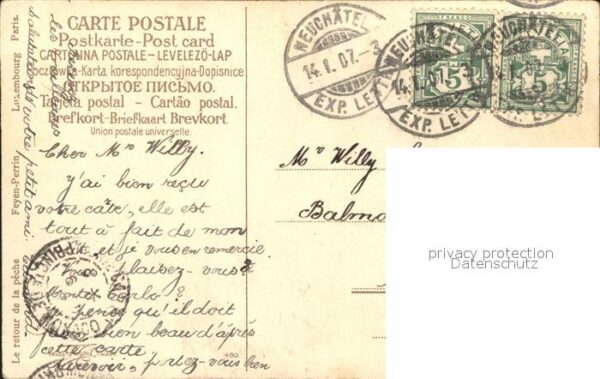 CARTE POSTALE
Postkarte-Post card
CARTOLINA POSTALE-LEVELEZŐ-LAP
Karta korespondencyjna-Dopisnice
ОТКРЫТОЕ ПИСЬМО.
Tarjeta postal - Cartão postal.
Brefkort-Briefkaart Brevkort
Union postale universelle.
Cher Mr Willy.
J'ai bien reçu
votre carte, elle est
tout à fait de mon
et je vous en remercie.
plaisez-vous à
?
pense qu'il doit
bien beau d'après
cette carte
revoir, portez-vous bien
votre petit ami
Le retour de la pêche Feyen-Perrin Luxembourg Paris.
NEUCHÂTEL
14.I.07.-3
EXP. LETT.
FRANCO
5
NEUCHÂTEL
14.I.07.-3
EXP. LETT.
5
NEUCHÂTEL
14.I.07
EXP. LETT
Mr Willy
Balmo
privacy protection
Datenschutz